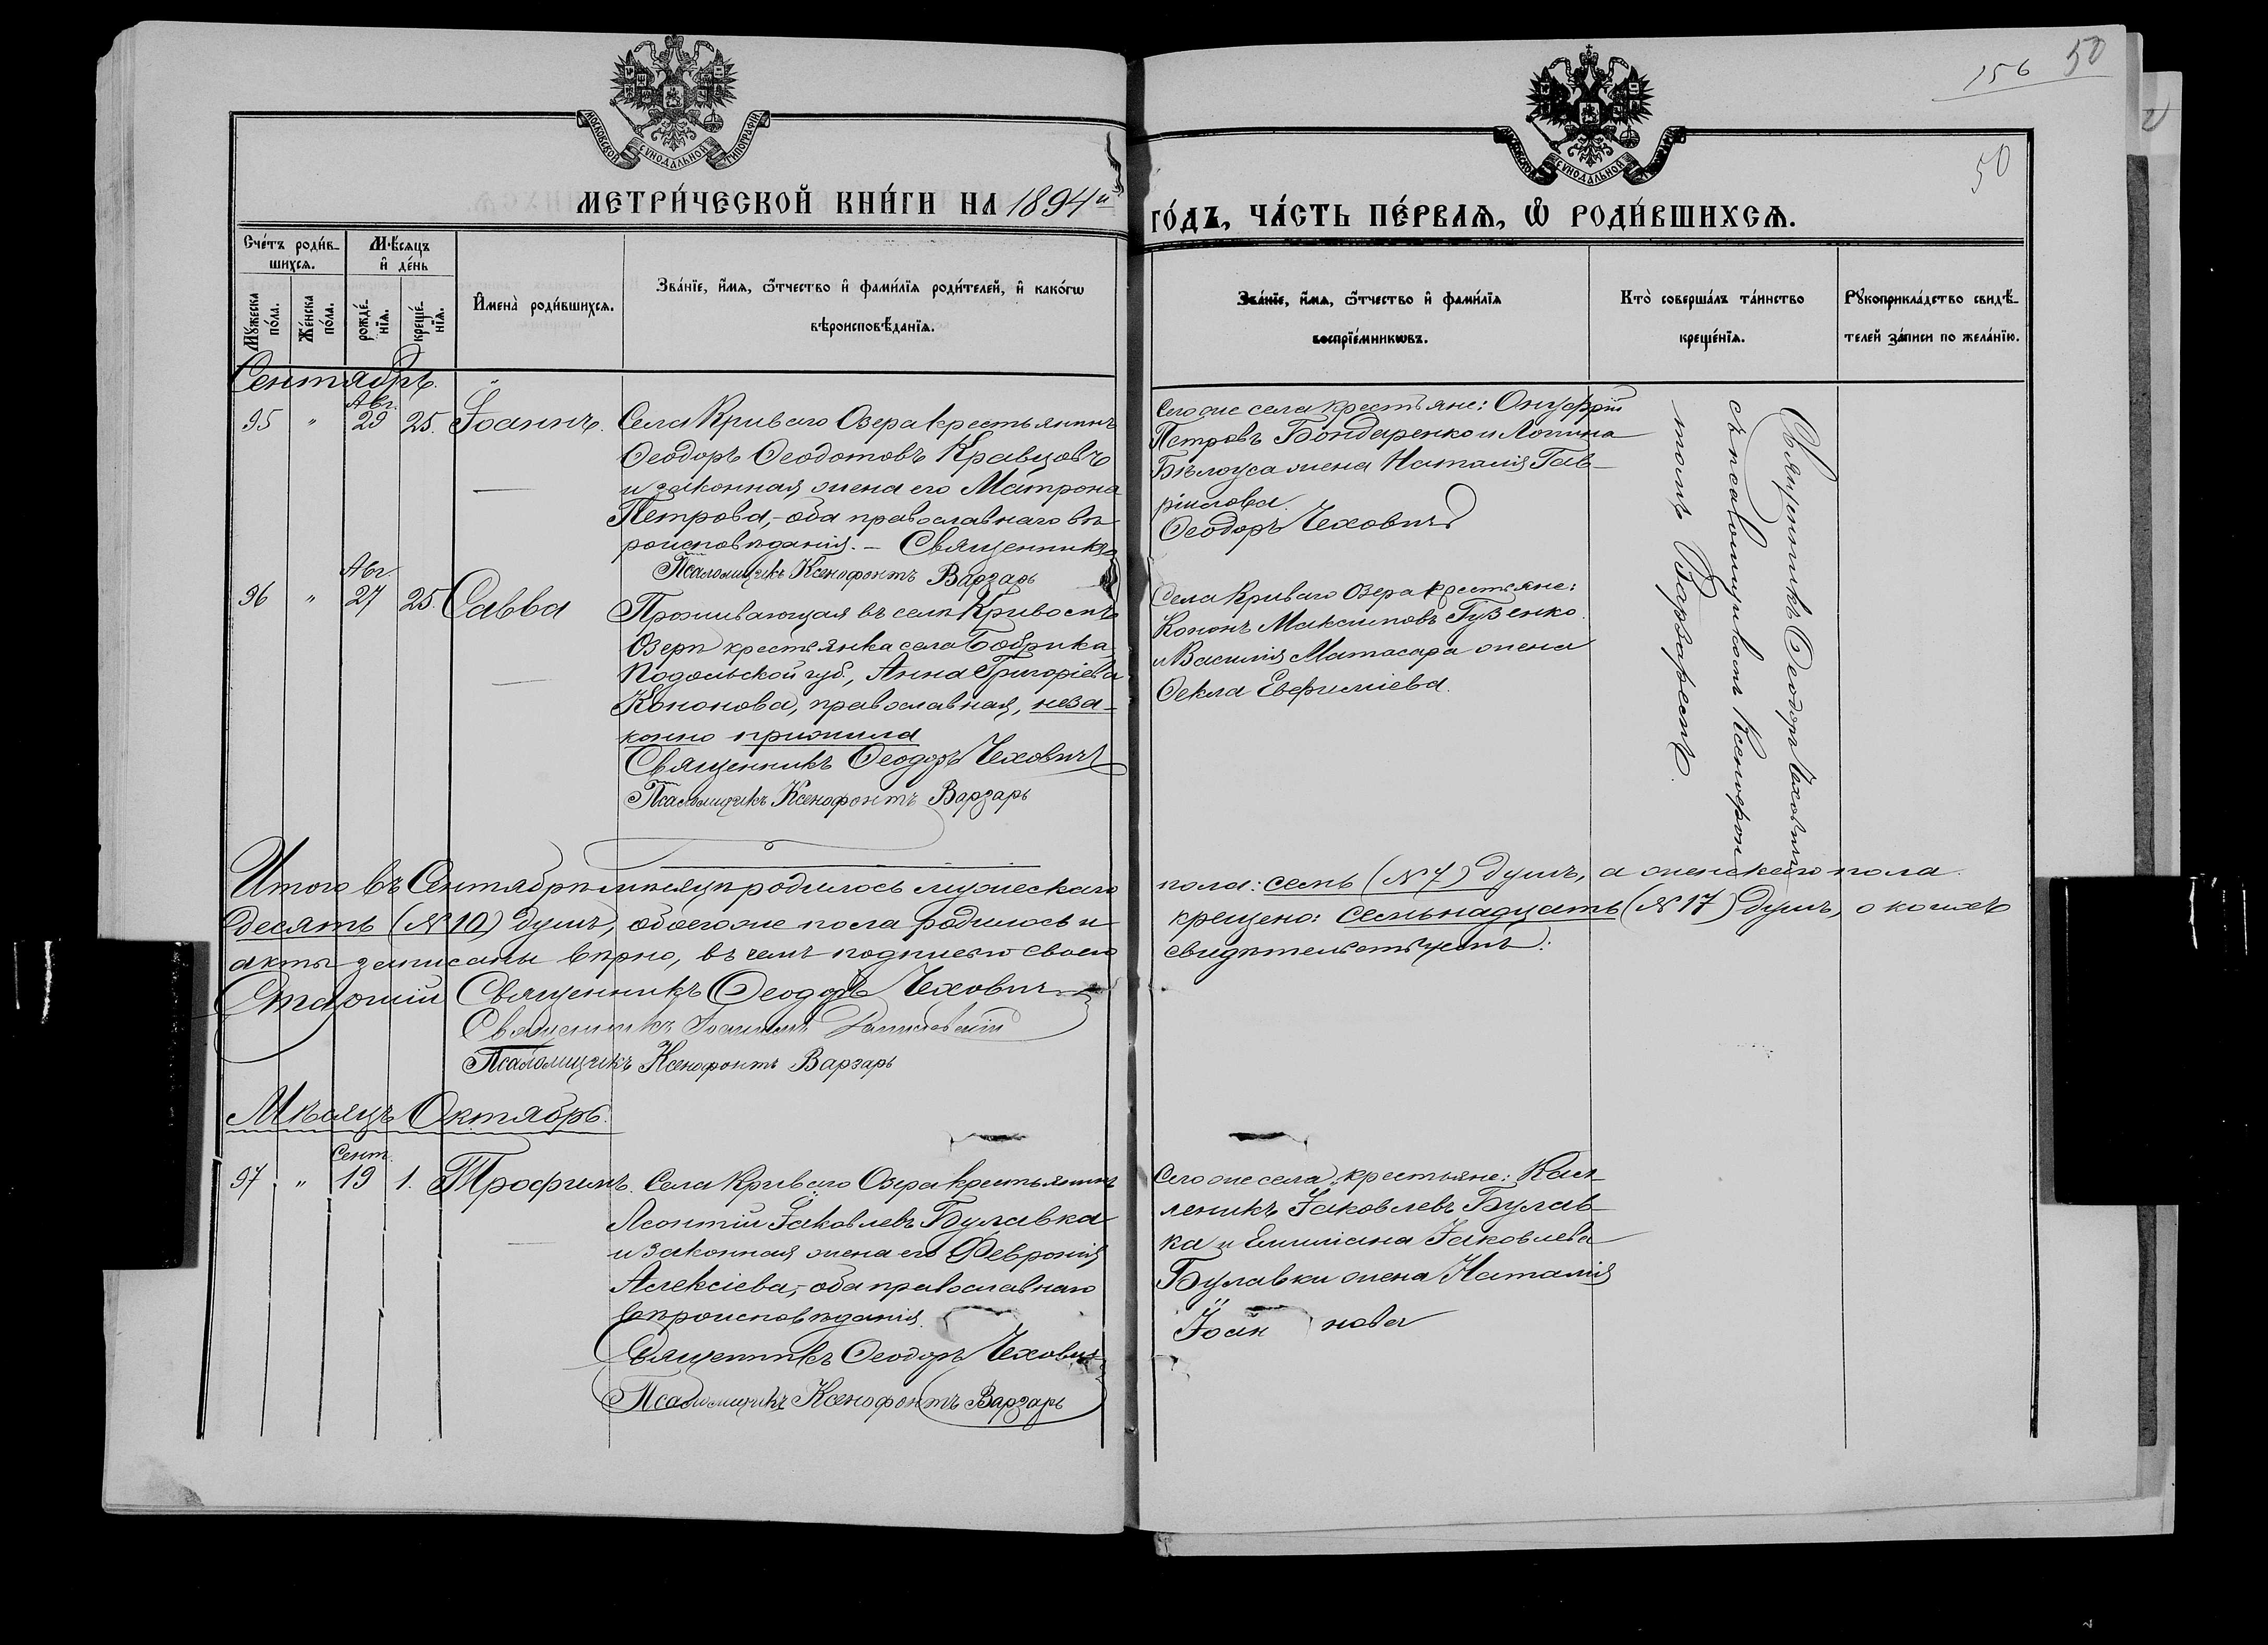 156 50
50
МОСКОВСКОЙ СѴНОДАЛЬНОЙ ТИПОГРАФІИ
МОСКОВСКОЙ СѴНОДАЛЬНОЙ ТИПОГРАФІИ
МЕТРИ́ЧЕСКОЙ КНИ́ГИ НА 1894й
ГО́ДЪ, ЧА́СТЬ ПЕ́РВАѦ, Ѡ҆ РОДИ́ВШИХСѦ.
Сче́тъ роди́вшихсѧ.
Мꙋ́жеска по́ла.
Же́нска по́ла.
Мѣ́сѧцъ и҆ де́нь
рожде́нїѧ.
креще́нїѧ.
И҆мена̀ роди́вшихсѧ.
Зва́нїе, и҆́мѧ, ѻ҆́тчество и҆ фами́лїѧ роди́телей, и҆ како́гѡ
вѣроисповѣ́данїѧ.
Зва́нїе, и҆́мѧ, ѻ҆́тчество и҆ фами́лїѧ
воспрїе́мникѡвъ.
Кто̀ соверша́лъ та́инство
креще́нїѧ.
Рꙋкоприкла́дство свидѣ́телей за́писи по жела́нїю.
Сентябрь.
Авг.
95 " 29 25. Іоаннъ.
Села Криваго Озера крестьянинъ
Ѳеодоръ Ѳеодотовъ Кравцовъ
и законная жена его Матрона
Петрова, - оба православнаго вѣ
роисповѣданія. - Священникъ
Псаломщикъ Ксенофонтъ Варзарь
Сего же села крестьяне: Онуфрій
Петровъ Бондаренко и Логина
Бѣлоуса жена Наталія Гав-
ріилова.
Ѳеодоръ Чеховичъ
Священникъ Ѳеодоръ Чеховичъ
съ псаломщикомъ Ксенофон
томъ Варзаремъ.
Авг.
96 " 27 25. Савва
Проживающая въ селѣ Кривомъ
Озерѣ крестьянка села Бобрика,
Подольской губ., Анна Григоріева
Кононова, православная, неза-
конно прижила
Священникъ Ѳеодоръ Чеховичъ
Псаломщикъ Ксенофонтъ Варзарь
Села Криваго Озера крестьяне:
Кононъ Максимовъ Гузенко
и Василія Матасара жена
Ѳекла Евфиміева.
Итого въ Сентябрѣ мѣсяцѣ родилось мужескаго
пола: семь (№ 7) душъ, а женскаго пола
десять (№ 10) душъ, обоего же пола родилось и
крещено: семьнадцать (№ 17) душъ, о комъ
акты записаны вѣрно, въ чемъ подписью своею
свидѣтельствуемъ:
Старшій Священникъ Ѳеодоръ Чеховичъ
Священникъ Іоаннъ
Псаломщикъ Ксенофонтъ Варзарь
Мѣсяцъ Октябрь.
Сент.
97 " 19 1. Трофимъ.
Села Криваго Озера крестьянинъ
Леонтій Іаковлевъ Булавка
и законная жена его Февронія
Алексіева, - оба православнаго
вѣроисповѣданія.
Священникъ Ѳеодоръ Чеховичъ
Псаломщикъ Ксенофонтъ Варзарь
Сего же села крестьяне: Кал
леникъ Іаковлевъ Булав-
ка и Емиліана Іаковлева
Булавки жена Наталія
Іоан нова